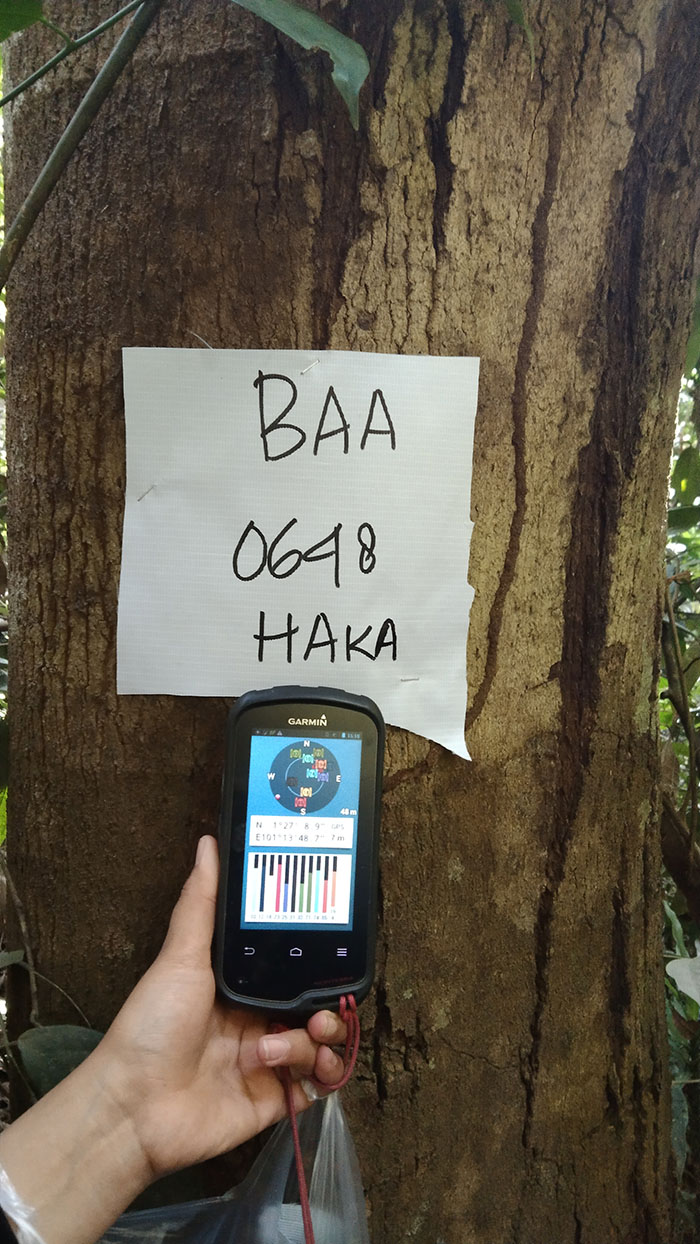 BAA
0648
HAKA
GARMIN
N
W
E
S
48 m
N 1°27' 8.9" GPS
E101°13'48.7" 7 m